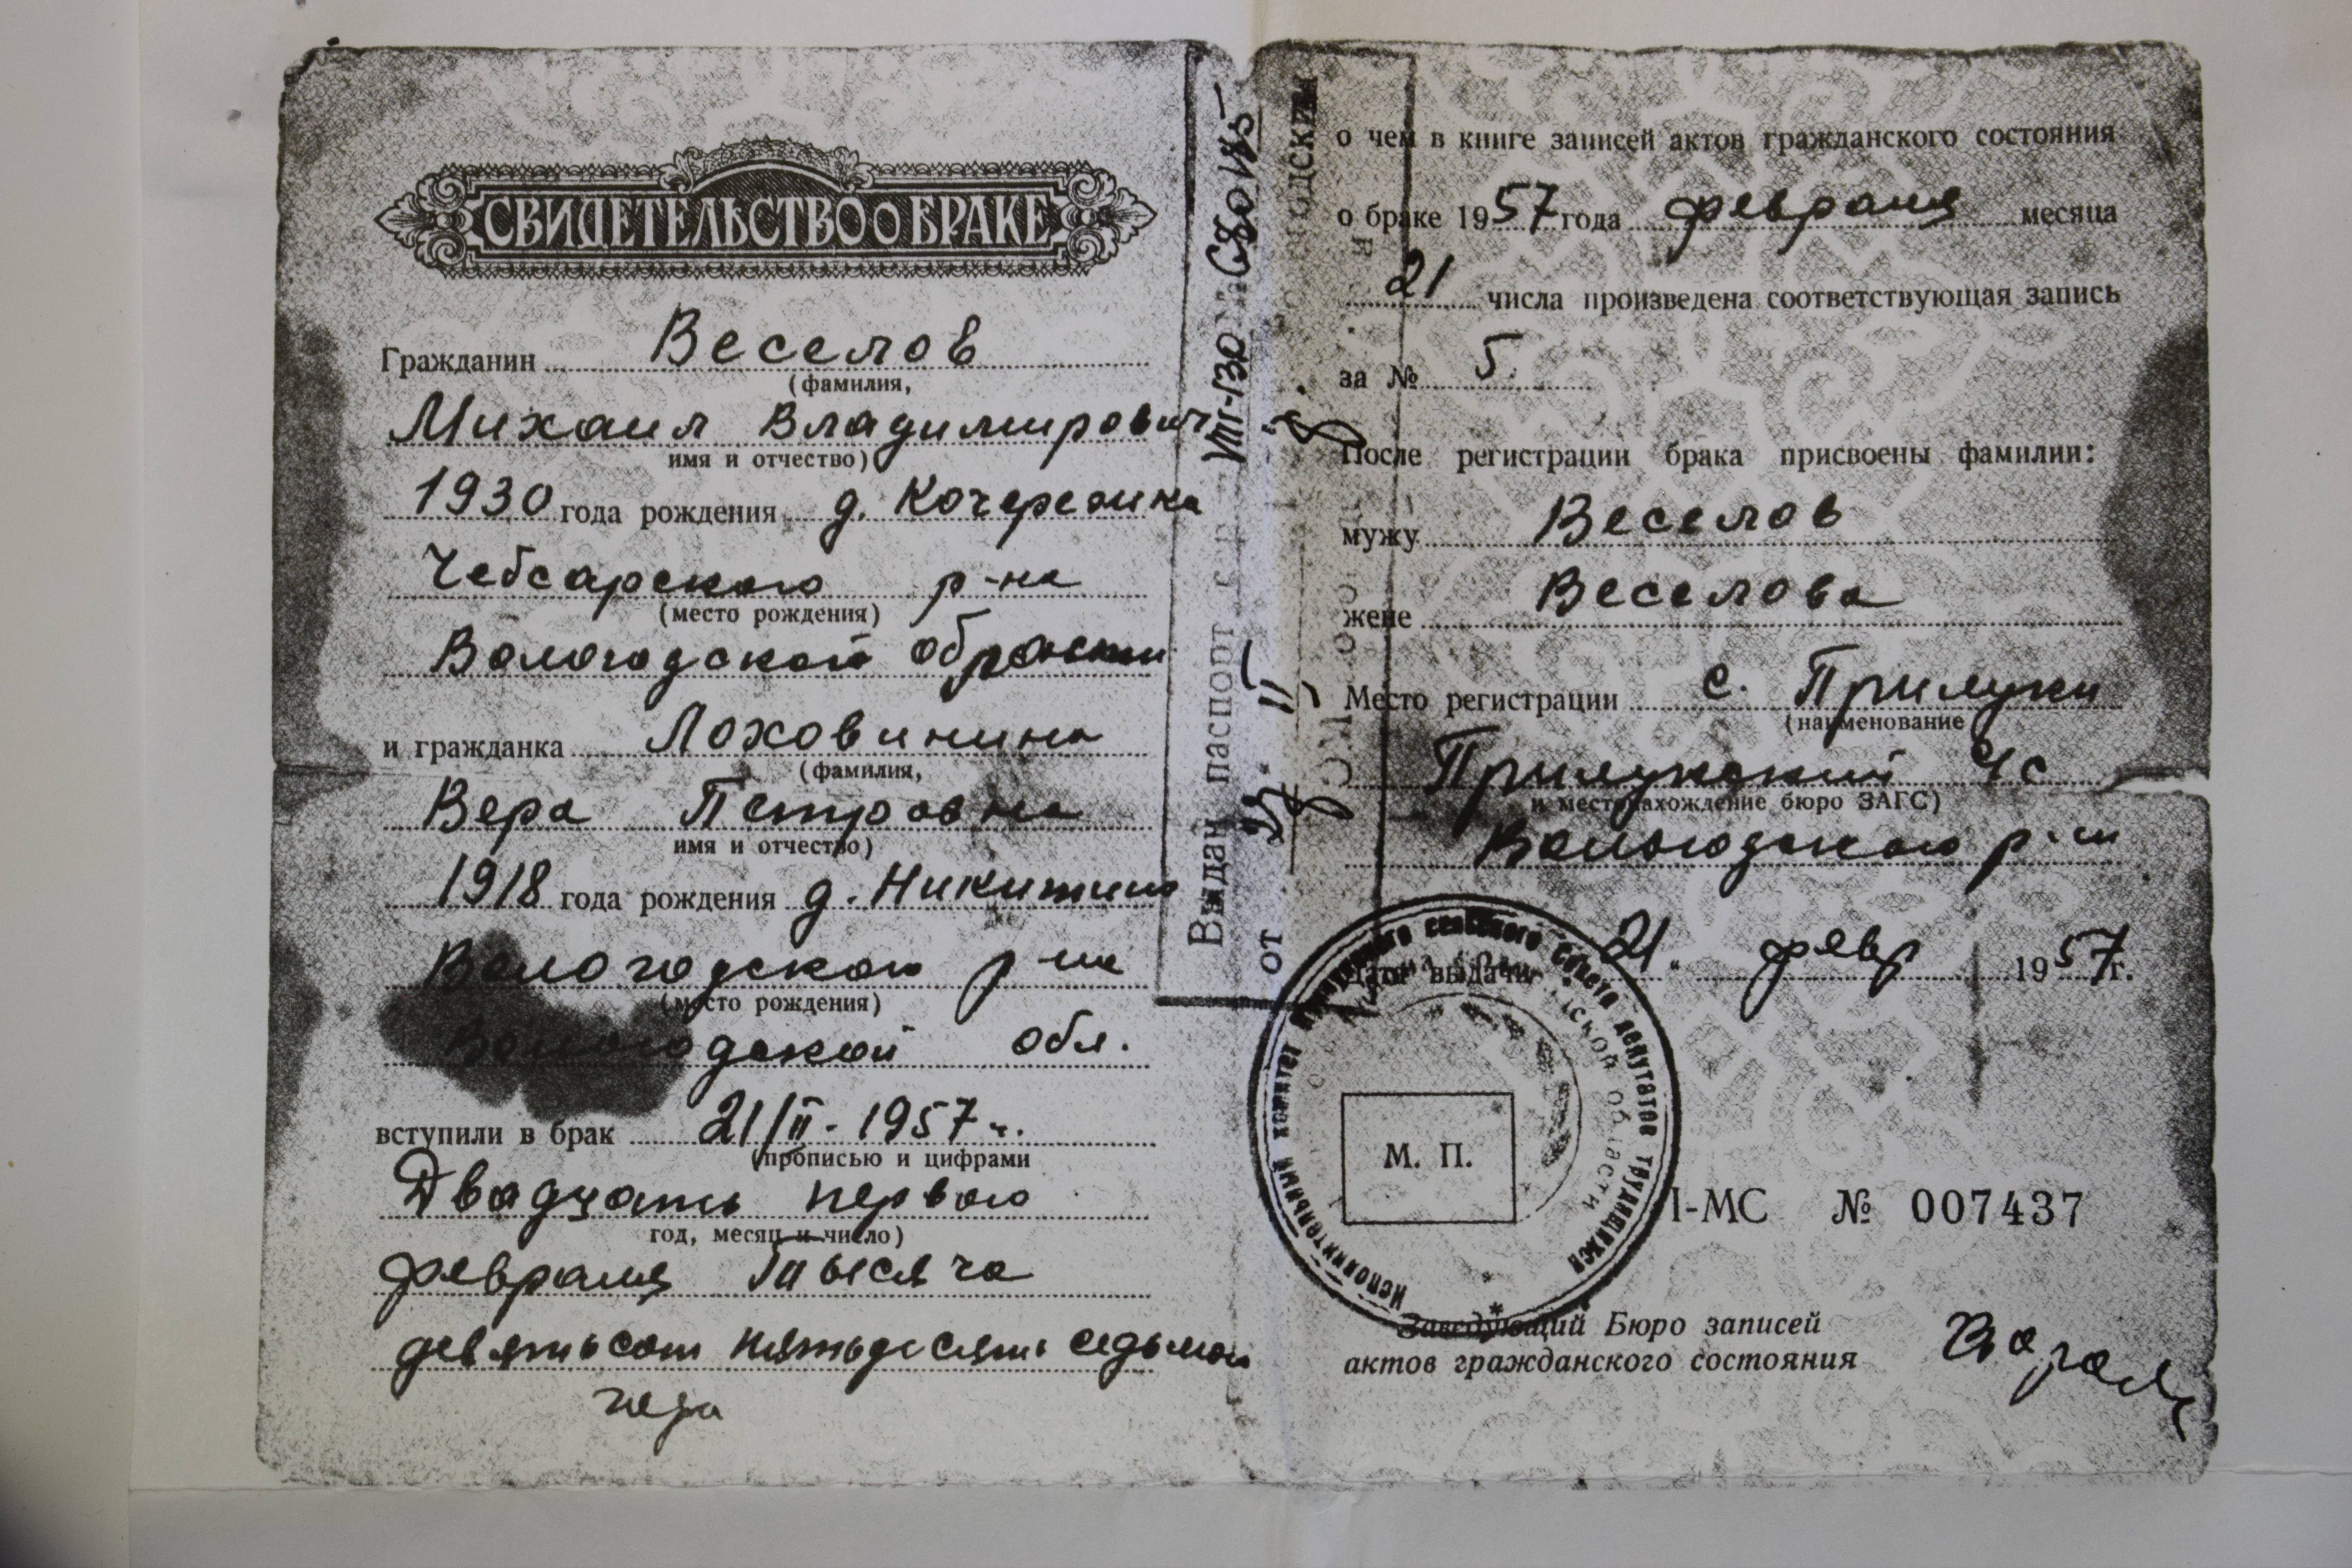 СВИДЕТЕЛЬСТВО О БРАКЕ
Гражданин Веселов
(фамилия,
Михаил Владимирович
имя и отчество)
1930 года рождения д.
Чебсарского р-на
(место рождения)
Вологодской области
и гражданка Лоховинина
(фамилия,
Вера Петровна
имя и отчество)
1918 года рождения д. Никитино
Вологодского р-на
(место рождения)
Вологодской обл.
вступили в брак 21/II - 1957 г.
(прописью и цифрами
Двадцать первого
год, месяц и число)
февраля Тысяча
девятьсот пятьдесят седьмого
года
Выдан паспорт
от
о чем в книге записей актов гражданского состояния
о браке 1957 года февраля месяца
21 числа произведена соответствующая запись
за № 5.
После регистрации брака присвоены фамилии:
мужу Веселов
жене Веселова
Место регистрации с. Прилуки
(наименование
Прилукский с/с
и местонахождение бюро ЗАГС)
Вологодского р-на
Дата выдачи 21. февр 1957 г.
Исполнительный комитет сельского совета депутатов трудящихся
области
М. П.
I-МС № 007437
Заведующий Бюро записей
актов гражданского состояния